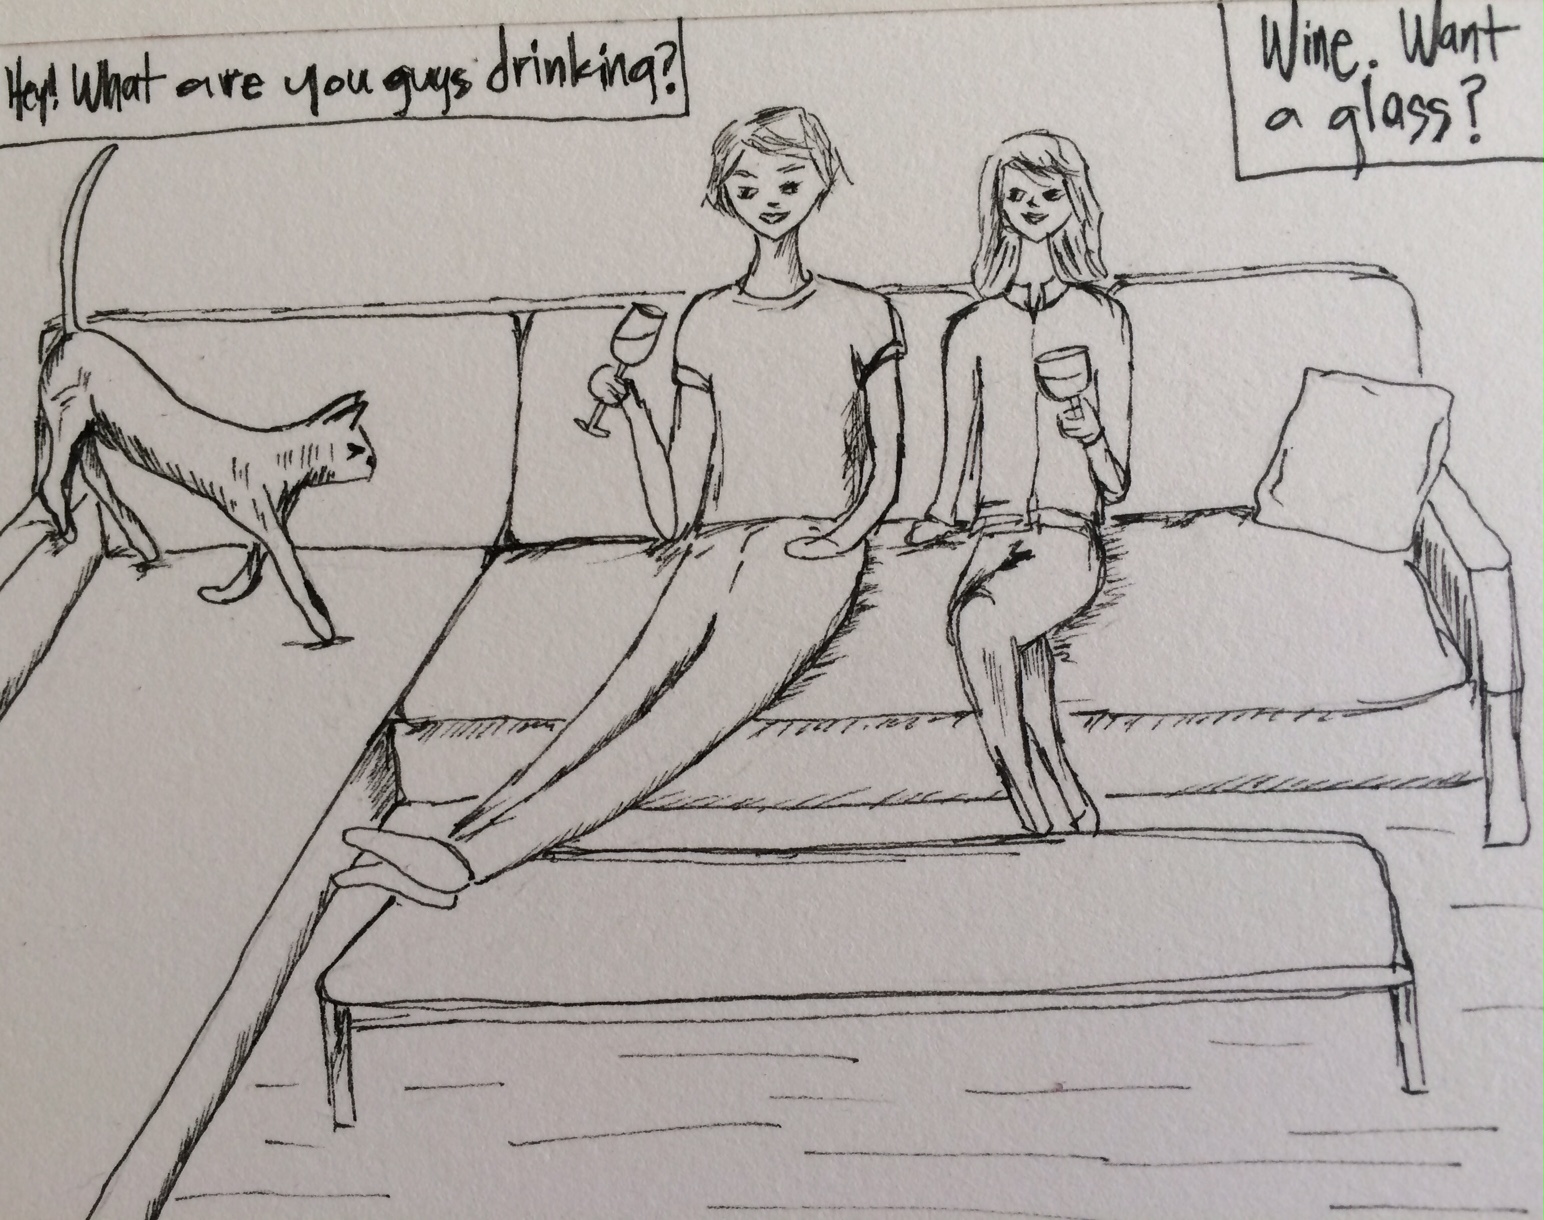 Hey! What are you guys drinking?
Wine. Want
a glass?